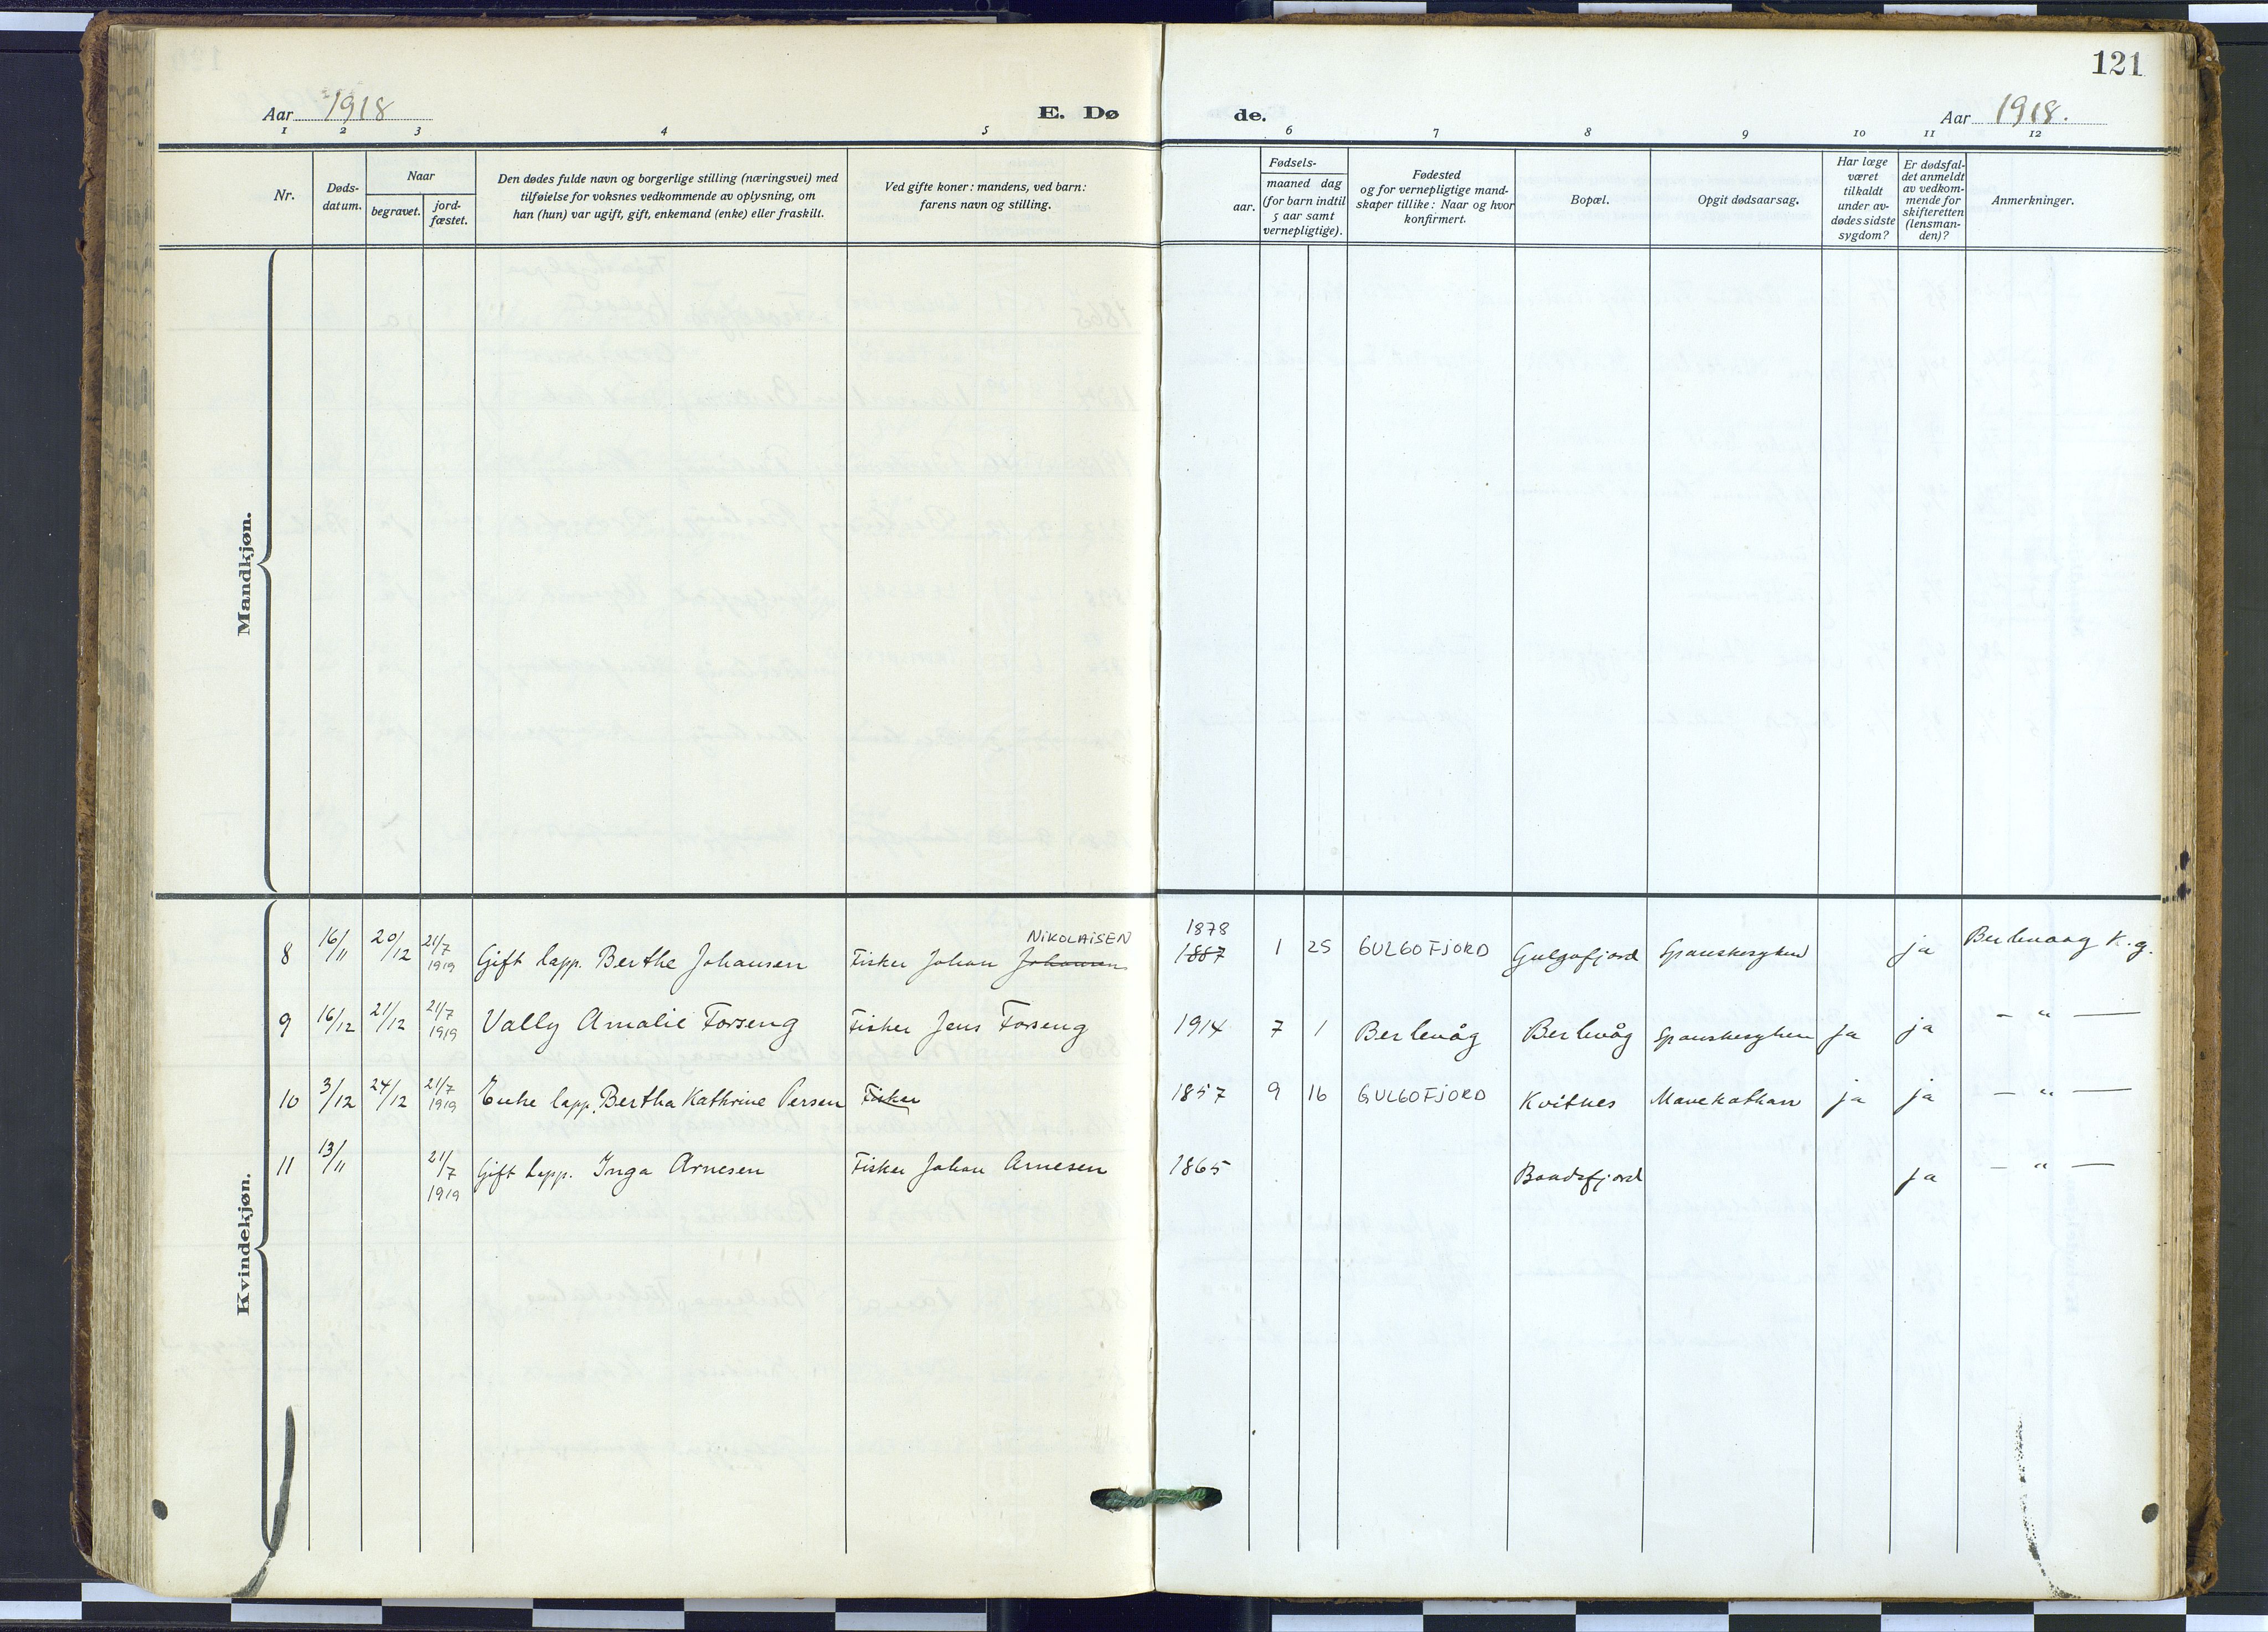 121
Aar 1918
E. Dø
de.
Aar 1918.
1 2 3 4 5 6 7 8 9 10 11 12
Nr.
Døds-
datum.
Naar
begravet.
jord-
fæstet.
Den dødes fulde navn og borgerlige stilling (næringsvei) med
tilføielse for voksnes vedkommende av oplysning, om
han (hun) var ugift, gift, enkemand (enke) eller fraskilt.
Ved gifte koner: mandens, ved barn:
farens navn og stilling.
Fødsels-
aar.
maaned dag
(for barn indtil
5 aar samt
vernepligtige).
Fødested
og for vernepligtige mand-
skaper tillike: Naar og hvor
konfirmert.
Bopæl.
Opgit dødsaarsag.
Har læge
været
tilkaldt
under av-
dødes sidste
sygdom?
Er dødsfal-
det anmeldt
av vedkom-
mende for
skifteretten
(lensman-
den)?
Anmerkninger.
Mandkjøn.
Kvindekjøn.
NIKOLAISEN 1878
8 16/11 20/12 21/7 1919 Gift lapp. Berthe Johansen Fisker Johan Johansen 1887 1 25 GULGOFJORD Gulgofjord Spanskesyken ja Berlevaag K.g.
9 16/12 21/12 21/7 1919 Vally Amalie Forseng Fisker Jens Forseng 1914 7 1 Berlevåg Berlevåg Spanskesyken Ja ja — " —
10 3/12 24/12 21/7 1919 Enke lapp. Bertha Kathrine Persen Fisker 1857 9 16 GULGOFJORD Kvitnes Mavekatharr ja ja — " —
11 13/11 21/7 1919 Gift lapp. Inga Arnesen Fisker Johan Arnesen 1865 Baadsfjord ja — " —